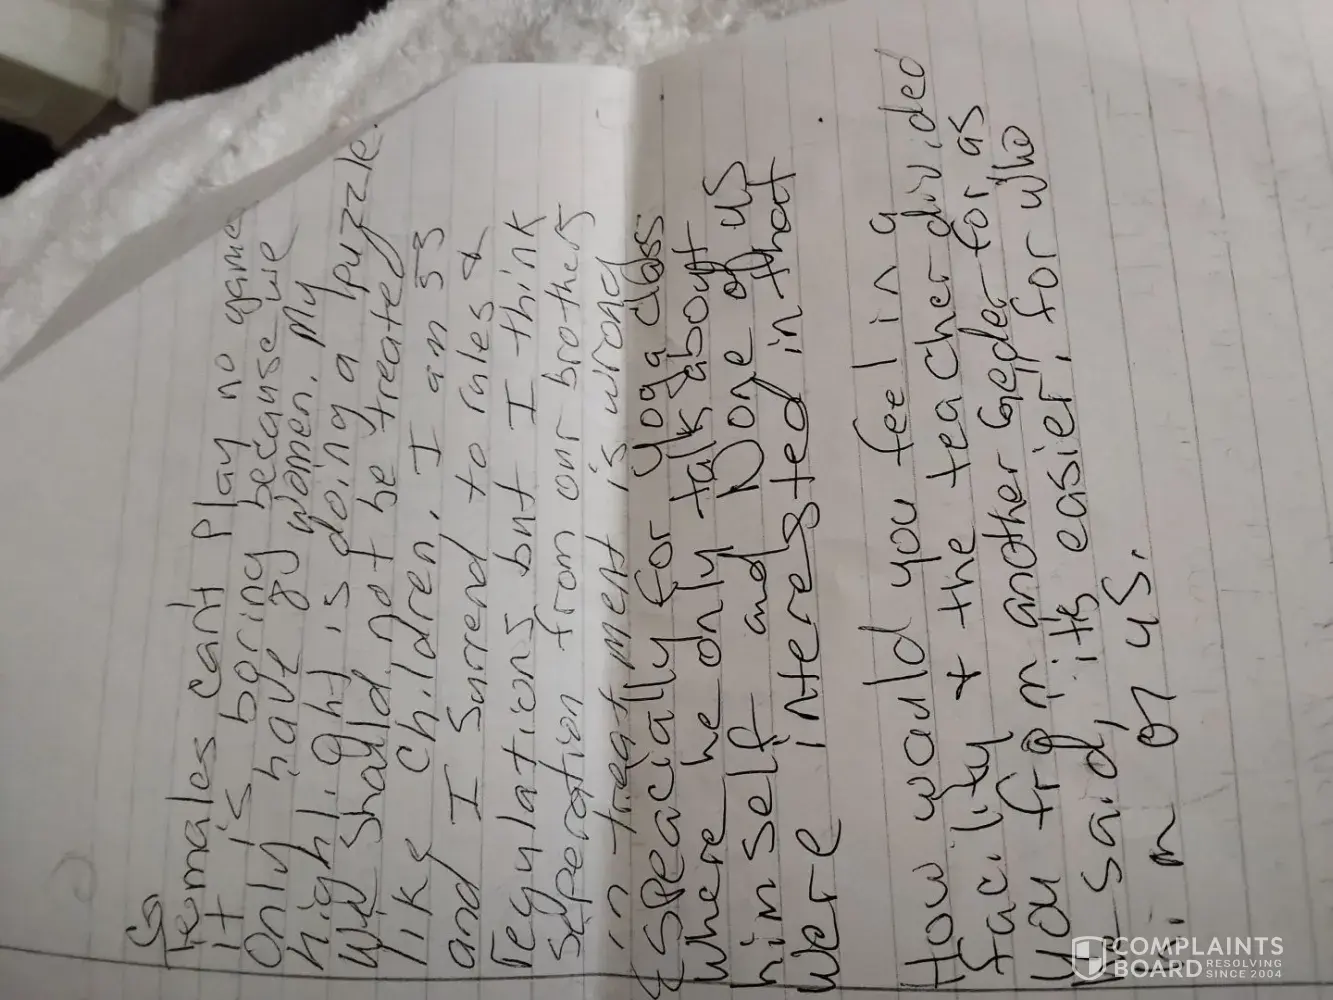 Females can't play no game
it is boring because we
only have 24 women. My
highlight is doing a puzzle.
We should not be treated
like children. I am 53
and I surrend to rules &
regulations but I think
seperation from our brothers
in treatment is wrong
Especially for yoga class
where he only talks about
himself and None of us
were interested in that
How would you feel in a
facility & the teacher divided
you from another Geder for as
he said, it's easier, for who
him or us.
COMPLAINTS
BOARD RESOLVING
SINCE 2004